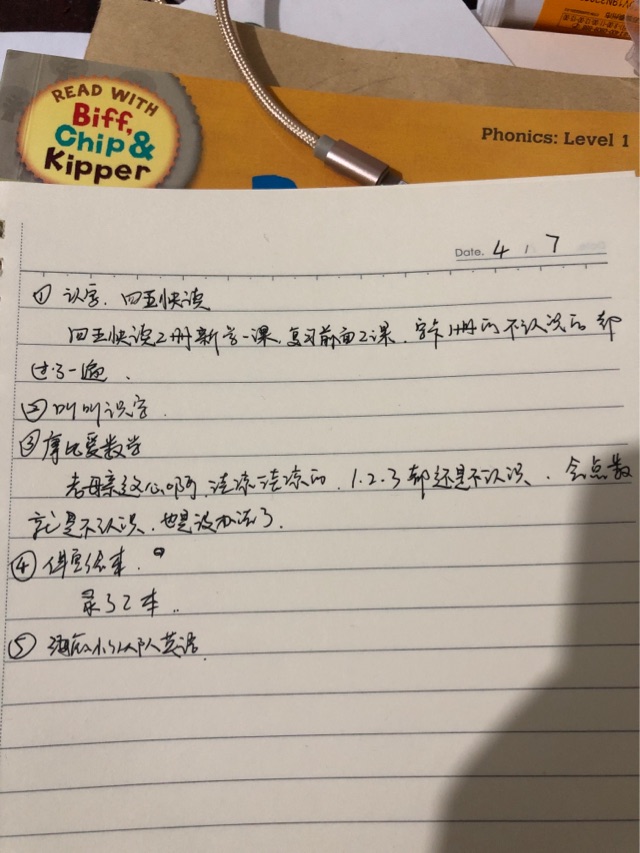 READ WITH
Biff,
Chip &
Kipper
Phonics: Level 1
Date. 4 / 7
① 认字. 四五快读
四五快读2册新学一课. 复习前面2课. 字卡1册的不认识的都
过了一遍.
② 叫叫识字.
③ 摩比爱数学
老母亲这心啊, 凉凉的. 1.2.3都还是不认识. 会点数
就是不认识. 也是没办法了.
④ 绘本.
录了2本..
⑤ 小纵队英语.